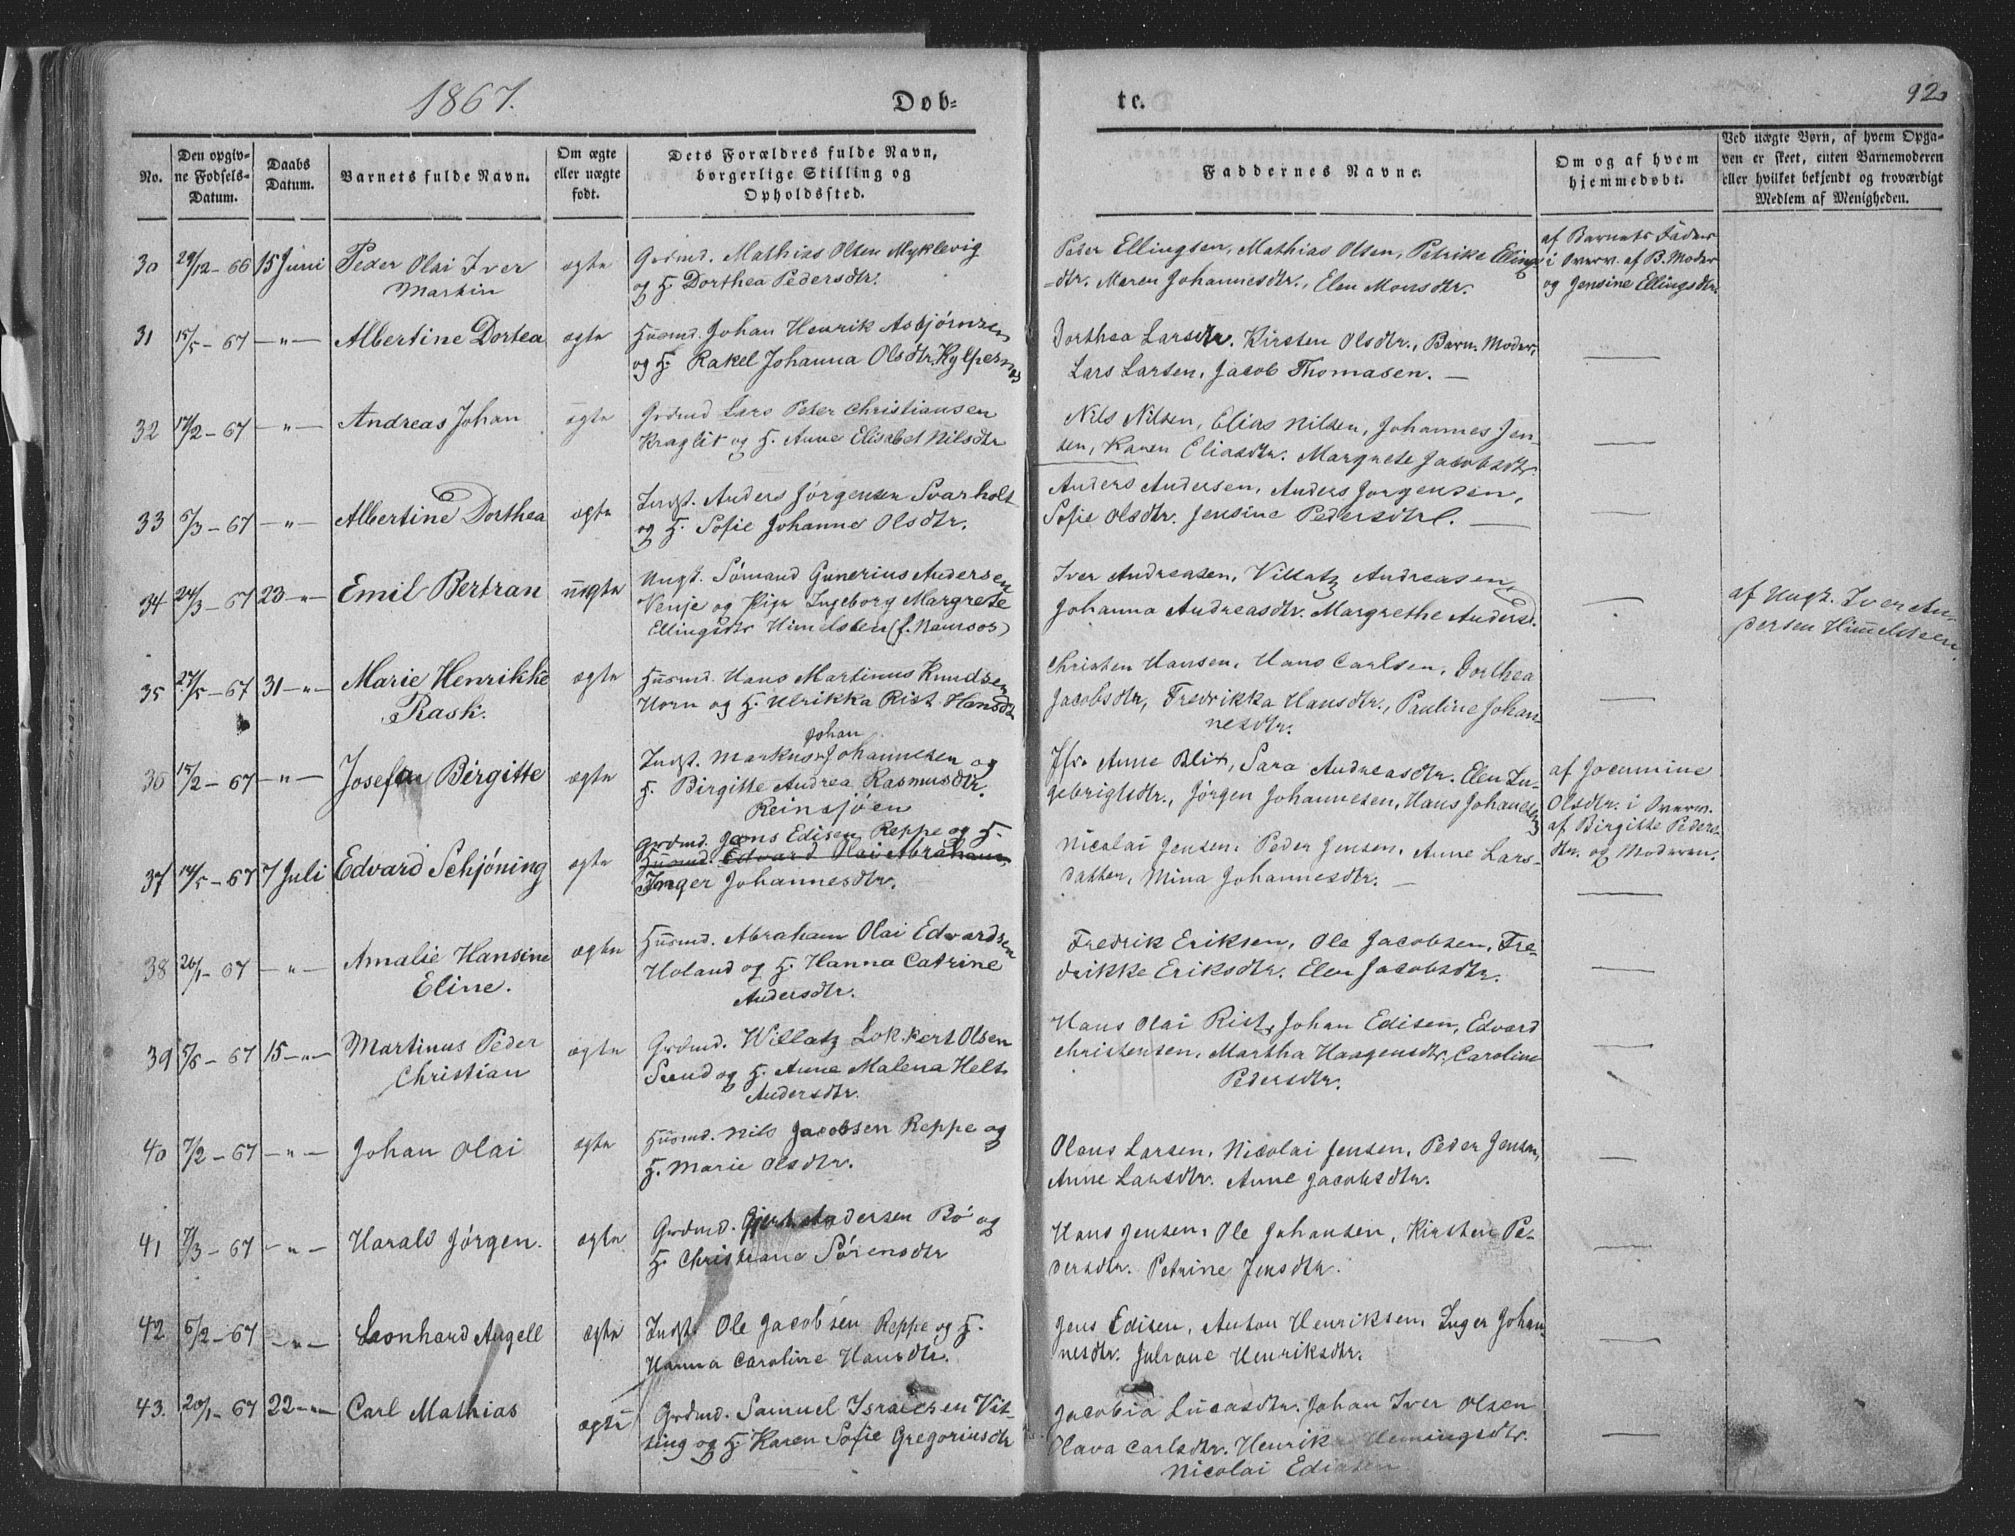 1867.
Døb-
te.
92
No.
Den opgiv-
ne Fødsels-
Datum.
Daabs
Datum.
Barnets fulde Navn.
Om ægte
eller uægte
født.
Dets Forældres fulde Navn,
borgerlige Stilling og
Opholdssted.
Faddernes Navne.
Om og af hvem
hjemmedøbt.
Ved uægte Børn, af hvem Opga-
ven er skeet, enten Barnemoderen
eller hvilket bekjendt og troværdigt
Medlem af Menigheden.
30 29/12-66 15 Juni Peder Olai Iver
Martin
ægte
Grdmd. Mathias Olsen Myklevig
og H. Dorthea Pedersdtr.
Peter Ellingsen, Mathias Olsen, Petrike Ellings
=dtr. Maren Johannesdtr., Elen Monsdtr.
af Barnets Fader
i Overv. af B. Moder
og Jensine Ellingsdtr.
31 15/5-67 -"- Albertine Dortea
ægte
Husmd. Johan Henrik Asbjørnsen
og H. Rakel Johanna Olsdtr. Kylpesnes
Dorthea Larsdtr. Kirsten Olsdtr., Barn. Moder,
Lars Larsen, Jacob Thomasen. —
32 17/2-67 -"- Andreas Johan
ægte
Grdmd Lars Peter Christiansen
Kraglit og H. Anne Elisabet Nilsdtr
Nils Nilsen, Elias Nilsen, Johannes Jen-
sen, Karen Eliasdtr. Margrete Jacobsdtr.
33 5/3-67 -"- Albertine Dorthea
ægte
Indst. Anders Jørgensen Svarholt
og H. Sofie Johanne Olsdtr.
Anders Andersen, Anders Jørgensen,
Sofie Olsdtr. Jensine Pedersdtr. —
34 24/3-67 23-"- Emil Bertran
uægte
Ungk. Sømand Gunerius Andersen
Venje og Pige Ingeborg Margrete
Ellingsdtr Himelsten (f. Namsos)
Iver Andreasen, Villatz Andreasen,
Johanna Andreasdtr. Margrethe Andersd.
af Ungk. Iver An-
dersen Himelsteen.
35 27/5-67 31-"- Marie Henrikke
Rask.
ægte
Husmd. Hans Martinus Knudsen
Horn og H. Ulrikka Rist Hansdtr
Christen Hansen, Hans Carlsen, Dorthea
Jacobsdtr, Fredrikka Hansdtr., Pauline Johan-
nesdtr.
36 15/2-67 -"- Josefa Birgitte
ægte
Johan
Indst. Markus Johannesen og
H. Birgitte Andrea Rasmusdtr.
Reinsjøen
Jfr. Anne Blix, Sara Andreasdtr. Elen In-
gebrigtsdtr., Jørgen Johannesen, Hans Johannesen
af Jocumine
Olsdtr. i Overv.
af Birgitte Peders-
dtr. og Moderen.
37 14/5-67 7 Juli Edvard Schjøning
ægte
Grdmd. Jens Edisen Reppe og H.
Husmd. Edvard Olai Abraham
Inger Johannesdtr.
Nicolai Jensen, Peder Jensen, Anne Lars-
datter, Mina Johannesdtr. —
38 26/1-67 -"- Amalie Hansine
Eline.
ægte
Husmd. Abraham Olai Edvardsen
Holand og H. Hanna Catrine
Andersdtr.
Fredrik Eriksen, Ole Jacobsen, Fre-
drikke Eriksdtr. Elen Jacobsdtr.
39 5/6-67 15-"- Martinus Peder
Christian
ægte
Grdmd. Willatz Lokkert Olsen
Sund og H. Anne Malena Helt
Andersdtr.
Hans Olai Rist, Johan Edisen, Edvard
Christensen, Martha Haagensdtr, Caroline
Pedersdtr.
40 7/2-67 -"- Johan Olai
ægte
Husmd. Nils Jacobsen Reppe og
H. Marie Olsdtr.
Olaus Larsen, Nicolai Jensen, Peder Jensen,
Anne Larsdtr. Anne Jacobsdtr.
41 7/3-67 -"- Harald Jørgen.
ægte
Grdmd. Andersen Bø og
H. Christiana Sørensdtr
Hans Jensen, Ole Johansen, Kirsten Pe-
dersdtr. Petrine Jensdtr.
42 5/2-67 -"- Leonhard Angell
ægte
Indst. Ole Jacobsen Reppe og H.
Hanna Caroline Hansdtr.
Jens Edisen, Anton Henriksen, Inger Johan-
nesdtr. Juliane Henriksdtr.
43. 20/1-67 22-"- Carl Mathias
ægte
Grdmd. Samuel Israelsen Vit-
ting og H. Karen Sofie Gregoriusdtr
Jacobia Lucasdtr. Johan Iver Olsen
Olava Carlsdtr. Henrik Hemingsdtr.
Nicolai Ediasen